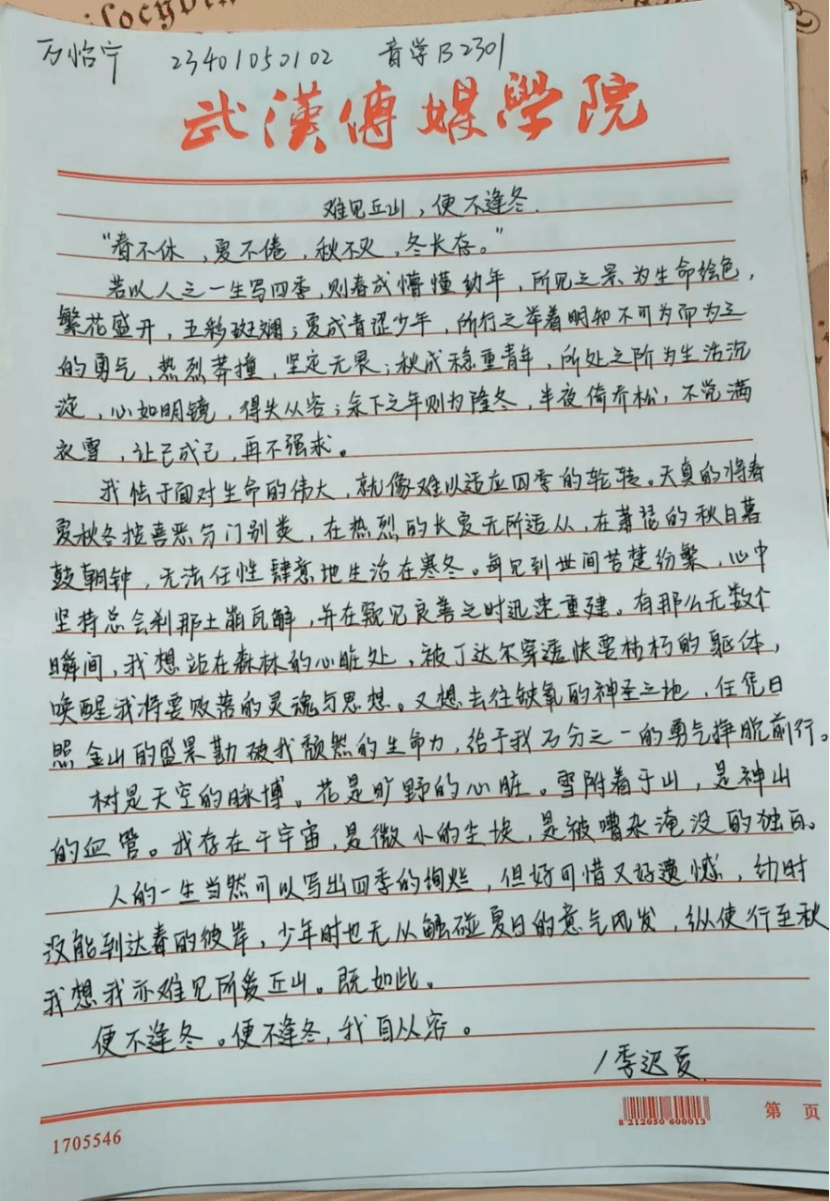 ilocybin
万怡宁 23401050102 音学B2301
武漢傳媒學院
难见丘山，便不逢冬.
“春不休，夏不倦，秋不灭，冬长存。”
若以人之一生写四季，则春成懵懂幼年，所见之景为生命绘色，
繁花盛开，五彩斑斓；夏成青涩少年，所行之举着明知不可为而为之
的勇气，热烈莽撞，坚定无畏；秋成稳重青年，所处之阶为生活沉
淀，心如明镜，得失从容；余下之年则为隆冬，半夜倚乔松，不觉满
衣雪，让己成己，再不强求。
我怯于面对生命的伟大，就像难以适应四季的轮转。天真的将春
夏秋冬按喜恶分门别类，在热烈的长夏无所适从，在萧瑟的秋日暮
鼓朝钟，无法任性肆意地生活在寒冬。每见到世间苦楚纷繁，心中
坚持总会刹那土崩瓦解，并在窥见良善之时迅速重建。有那么无数个
瞬间，我想站在森林的心脏处，被丁达尔穿透快要枯朽的躯体，
唤醒我将要败落的灵魂与思想。又想去往缺氧的神圣之地，任凭日
照金山的盛景勘破我颓然的生命力，给于我万分之一的勇气挣脱前行。
树是天空的脉博。花是旷野的心脏。雪附着于山，是神山
的血管。我存在于宇宙，是微小的尘埃，是被嘈杂淹没的独白。
人的一生当然可以写出四季的绚烂，但好可惜又好遗憾，幼时
没能到达春的彼岸，少年时也无从触碰夏日的意气风发，纵使行至秋
我想我亦难见所爱丘山。既如此。
便不逢冬。便不逢冬，我自从容。
/季迟夏
8 212050 600013
第 页
1705546